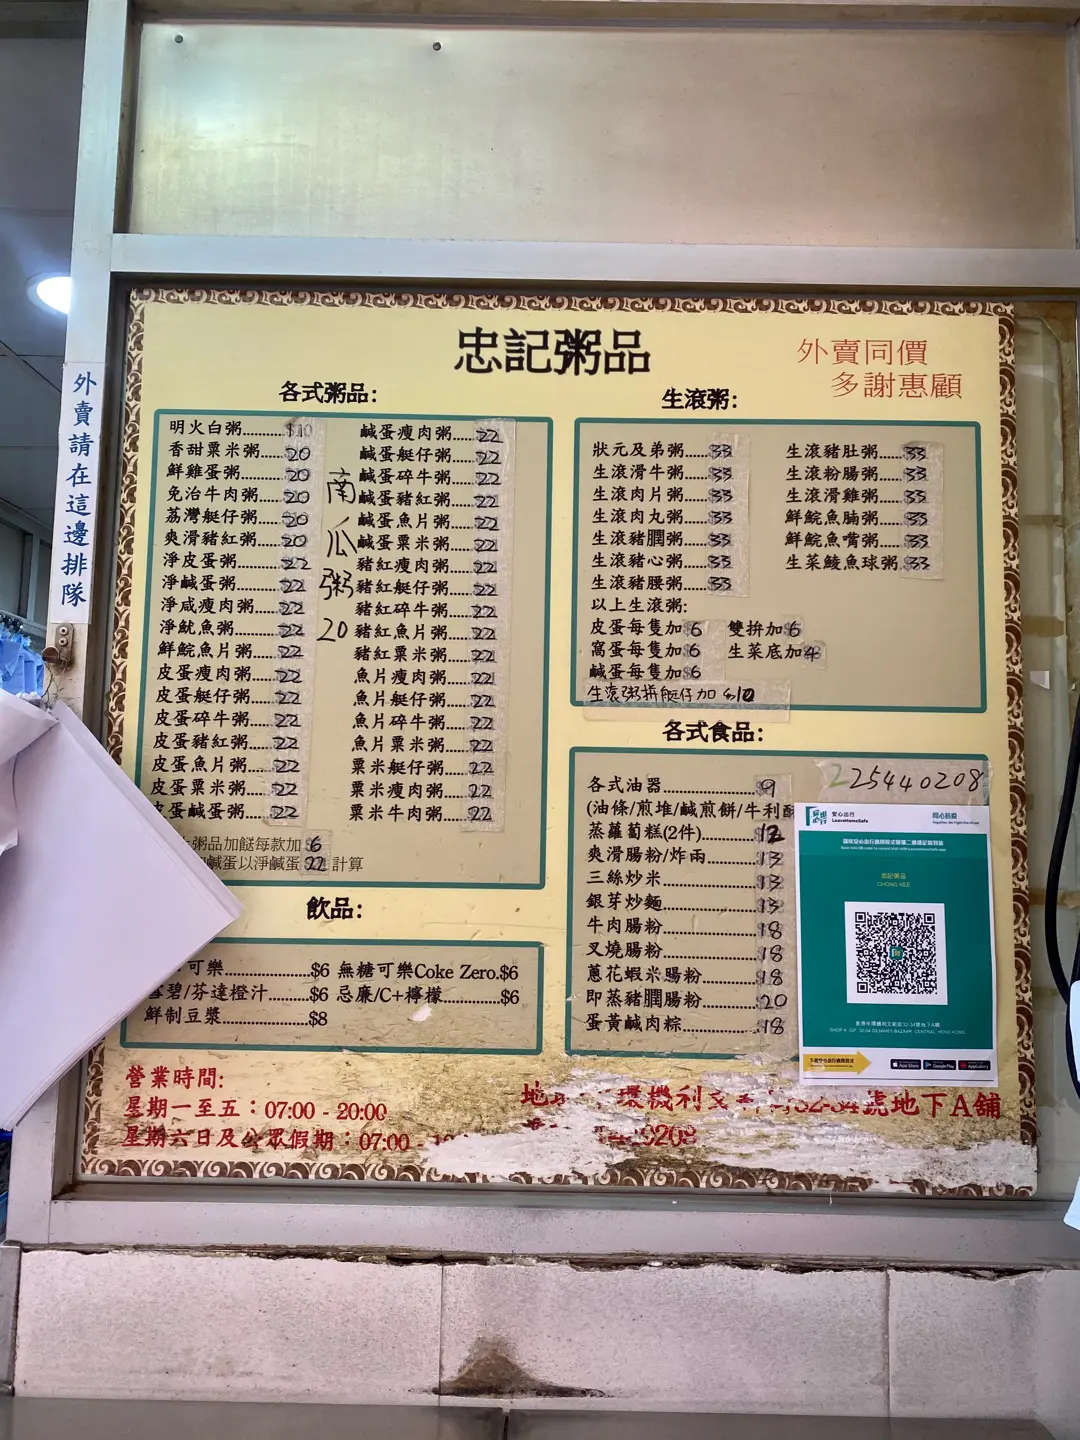 忠記粥品
外賣同價
多謝惠顧
外賣請在這邊排隊
各式粥品:
明火白粥........$10
香甜粟米粥...20
鮮雞蛋粥.......20
免治牛肉粥...20
荔灣艇仔粥...20
爽滑豬紅粥...20
淨皮蛋粥.......22
淨鹹蛋粥.......22
淨咸瘦肉粥...22
淨魷魚粥.......22
鮮鯇魚片粥...22
皮蛋瘦肉粥...22
皮蛋艇仔粥...22
皮蛋碎牛粥...22
皮蛋豬紅粥...22
皮蛋魚片粥...22
皮蛋粟米粥...22
皮蛋鹹蛋粥...22
南瓜粥 20
鹹蛋瘦肉粥....22
鹹蛋艇仔粥....22
鹹蛋碎牛粥....22
鹹蛋豬紅粥....22
鹹蛋魚片粥....22
鹹蛋粟米粥....22
豬紅瘦肉粥....22
豬紅艇仔粥....22
豬紅碎牛粥....22
豬紅魚片粥....22
豬紅粟米粥....22
魚片瘦肉粥....22
魚片艇仔粥....22
魚片碎牛粥....22
魚片粟米粥....22
粟米艇仔粥....22
粟米瘦肉粥....22
粟米牛肉粥....22
粥品加餸每款加$6
鹹蛋以淨鹹蛋 22 計算
飲品:
可樂................$6 無糖可樂Coke Zero.$6
雪碧/芬達橙汁........$6 忌廉/C+檸檬...........$6
鮮制豆漿................$8
生滾粥:
狀元及弟粥....33
生滾滑牛粥....33
生滾肉片粥....33
生滾肉丸粥....33
生滾豬膶粥....33
生滾豬心粥....33
生滾豬腰粥....33
生滾豬肚粥....33
生滾粉腸粥....33
生滾滑雞粥....33
鮮鯇魚腩粥....33
鮮鯇魚嘴粥....33
生菜鯪魚球粥.33
以上生滾粥:
皮蛋每隻加$6 雙拚加$6
窩蛋每隻加$6 生菜底加4
鹹蛋每隻加$6
生滾粥拼艇仔加 $10
各式食品:
225440208
各式油器....................9
(油條/煎堆/鹹煎餅/牛利
蒸蘿蔔糕(2件)...........12
爽滑腸粉/炸兩...........13
三絲炒米....................13
銀芽炒麵....................13
牛肉腸粉....................18
叉燒腸粉....................18
蔥花蝦米腸粉............18
即蒸豬膶腸粉............20
蛋黃鹹肉粽................18
安心出行
LeaveHomeSafe
同心抗疫
Together, We Fight the Virus
忠記粥品
CHONG KEE
香港中環機利文新街32-34號地下A舖
SHOP A, G/F, 32-34 GILMAN'S BAZAAR, CENTRAL, HONG KONG
App Store
Google Play
AppGallery
營業時間:
星期一至五：07:00 - 20:00
星期六日及公眾假期：07:00 -
地 環機利文 32-34號地下A舖
0208